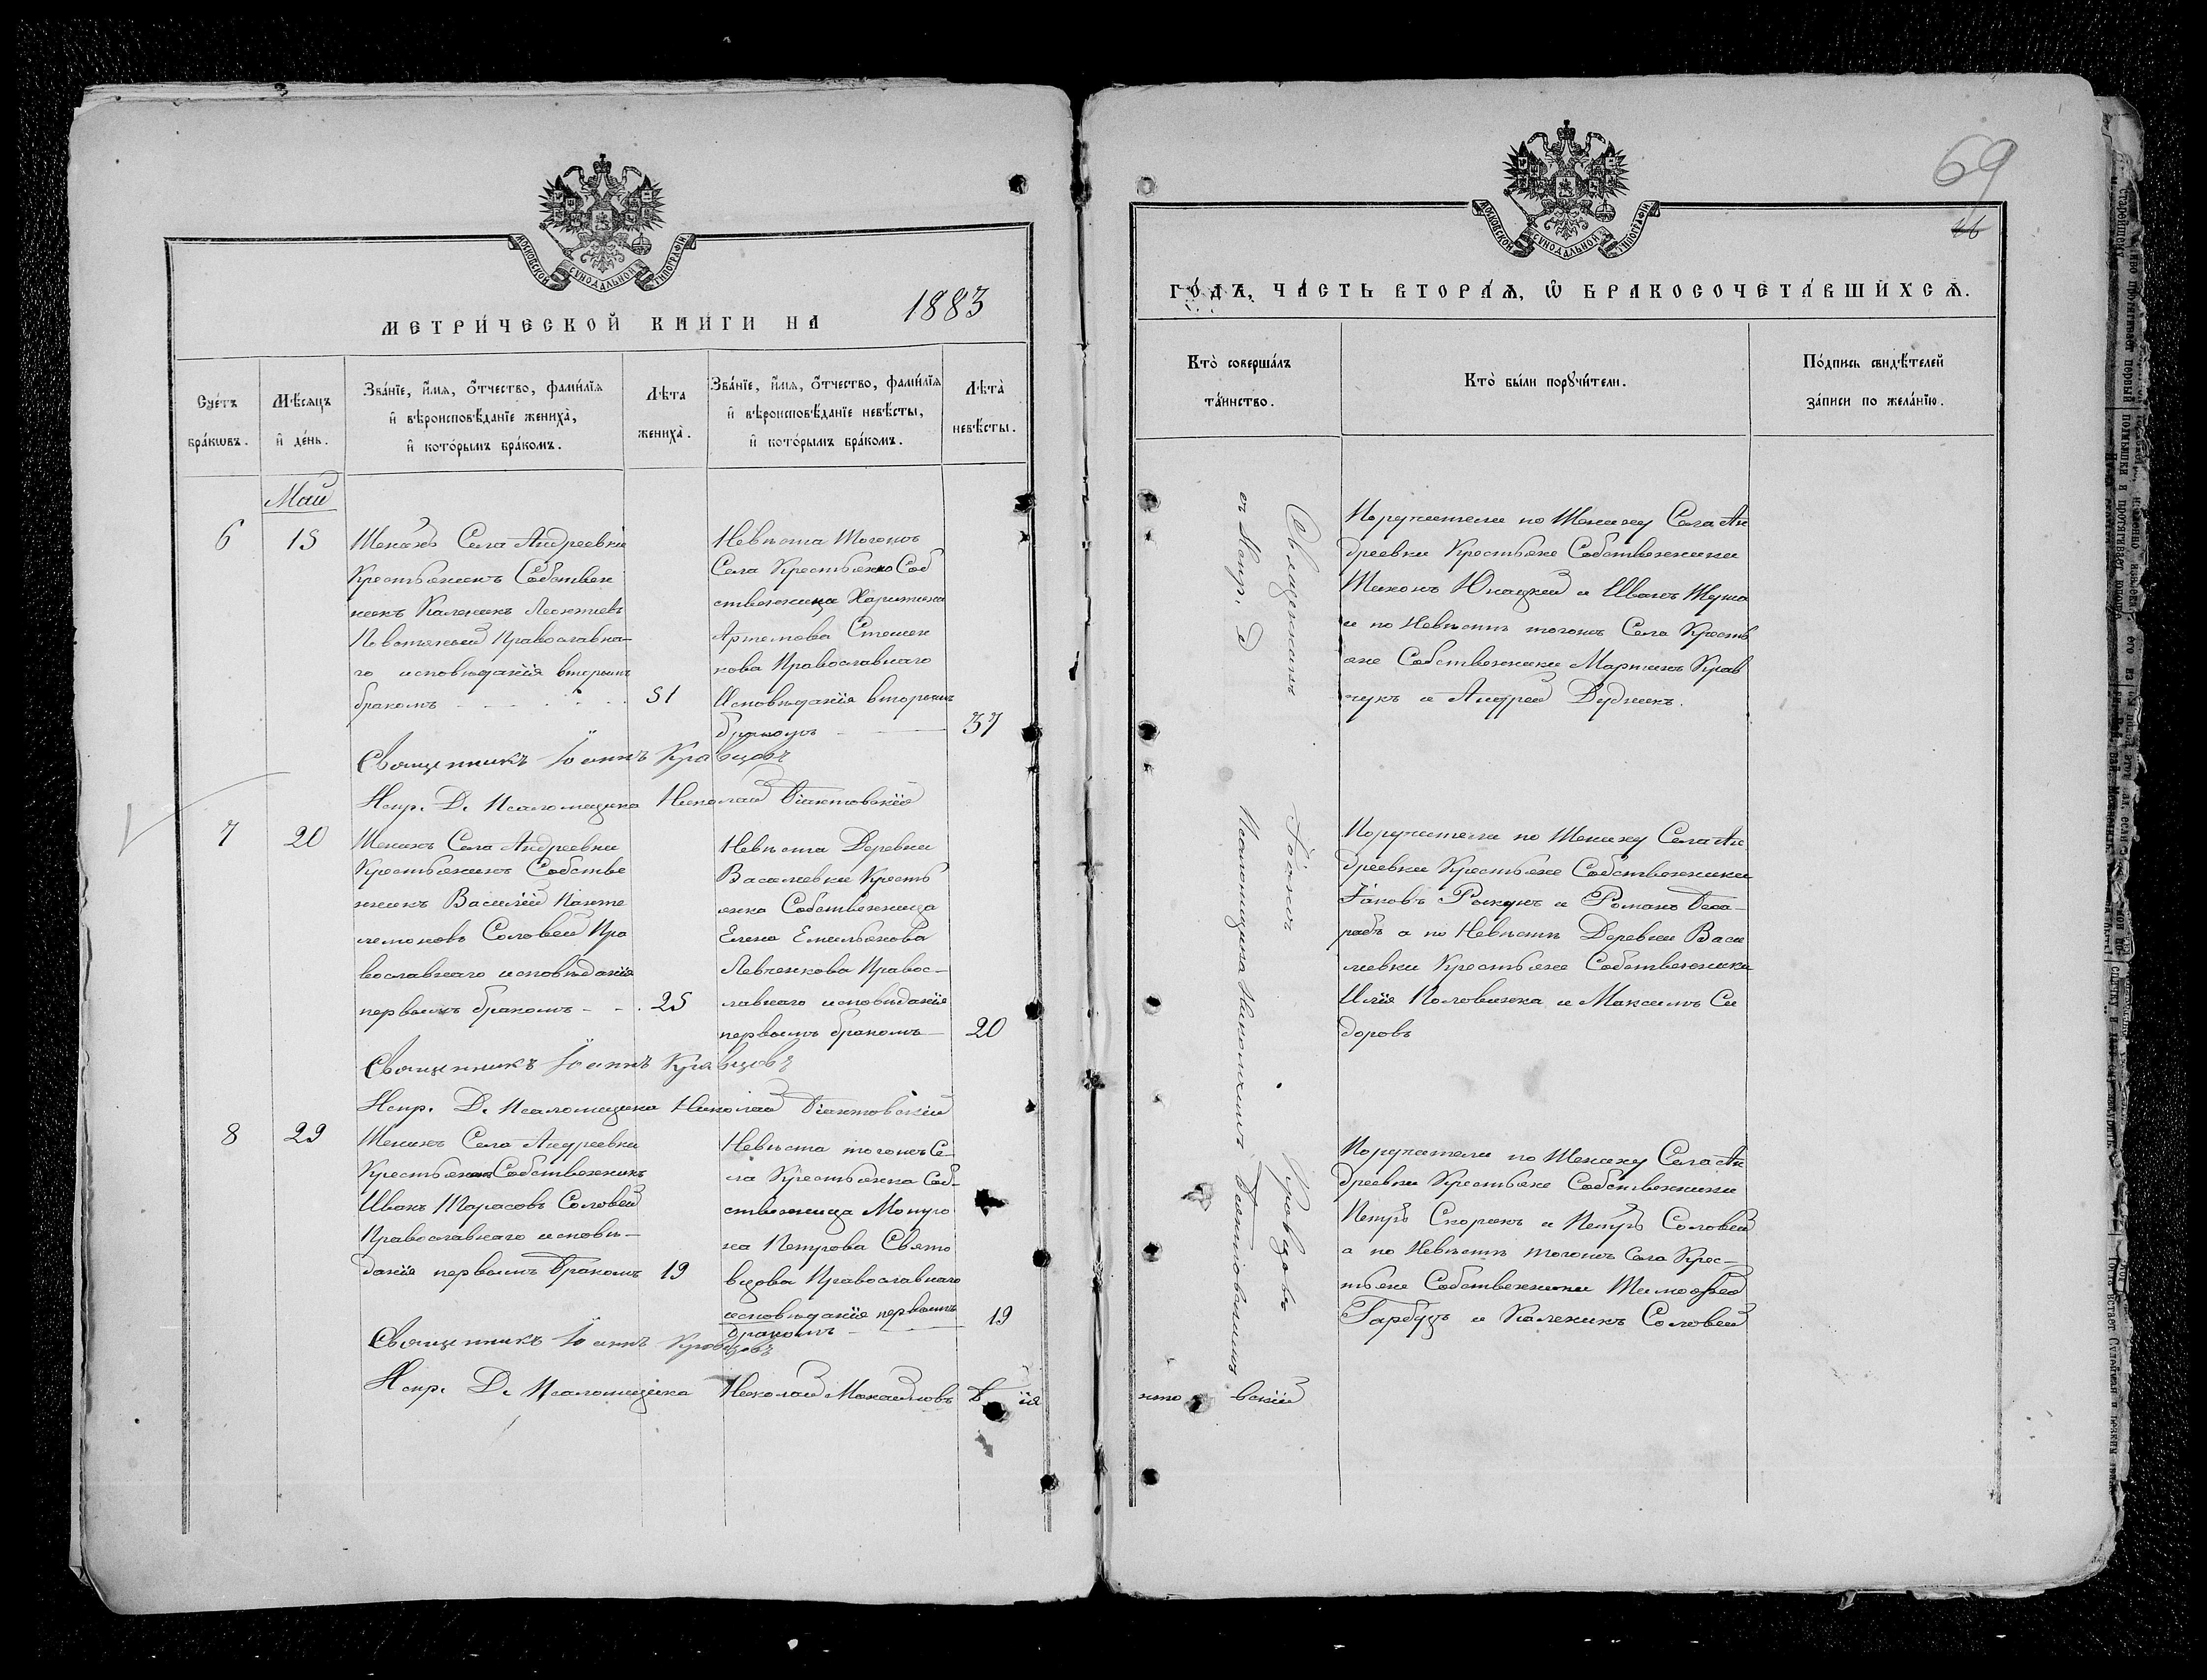 МОСКОВСКОЙ СУНОДАЛЬНОЙ ТИПОГРАФІИ
МЕТРИ́ЧЕСКОЙ КНИГИ НА 1883
Сче́тъ бра́кωвъ.
Мѣ́сяцъ и҆ де́нь.
Зва́нїе, и҆́мѧ, ѻ҆́тчество, фами́лїѧ
и҆ вѣроисповѣ́данїе жениха̀,
и҆ кото́рымъ бра́комъ.
Лѣта жениха̀.
Зва́нїе, и҆́мѧ, ѻ҆́тчество, фами́лїѧ
и҆ вѣроисповѣ́данїе невѣ́сты,
и҆ кото́рымъ бра́комъ.
Лѣта̀ невѣ́сты.
Май
6
15
Женихъ Села Андреевки
Крестьянинъ Собствен
никъ Каленикъ Леонтіевъ
Православна-
го исповѣданія вторымъ
бракомъ
51
Невѣста тогожъ
Села Крестьянка Соб
ственница Харитина
Артемова Стешен
кова Православнаго
Исповѣданія вторымъ
бракомъ
37
Священникъ Іоаннъ Кравцовъ
Испр. Д. Псаломщика Николай
7
20
Женихъ Села Андреевки
Крестьянинъ Собстве
нникъ Василій Панте
лемоновъ Соловей Пра
вославнаго исповѣданія
первымъ бракомъ
25
Невѣста Деревни
Василевки Кресть
янка Собственница
Елена Емельянова
Левченкова Правос-
лавнаго исповѣданія
первымъ бракомъ
20
Священникъ Іоаннъ Кравцовъ
Испр. Д. Псаломщика Николай
8
29
Женихъ Села Андреевки
Крестьянинъ Собственникъ
Иванъ Тарасовъ Соловей
Православнаго исповѣ-
данія первымъ бракомъ
19
Невѣста тогожъ Се-
ла Крестьянка Соб-
ственница Мотро
на Петрова Свято
вцова Православнаго
исповѣданія первымъ
бракомъ
19
Священникъ Іоаннъ Кравцовъ
Испр. Д. Псаломщика Николай Михайловъ
69
26
МОСКОВСКОЙ СУНОДАЛЬНОЙ ТИПОГРАФІИ
ГО́ДЪ, ЧА́СТЬ ВТОРА́Ѧ, Ѽ БРАКОСОЧЕТА́ВШИХСѦ.
Кто̀ соверша́лъ
та́инство.
Кто̀ бы́ли порꙋчи́тели.
По́дпись свидѣ́телей
за́писи по жела́нїю.
Священникъ Іоаннъ Кравцовъ
съ Испр. Д Псаломщика Николаемъ
Поручители по Жениху Села Ан
дреевки Крестьяне Собственники
Тихонъ Юнацкій и Иванъ
и по Невѣстѣ тогожъ Села Кресть
яне Собственники Мартинъ Крав
чукъ и Андрей Дудникъ.
Поручители по Жениху Села Ан
дреевки Крестьяне Собственники
Іаковъ и Романъ
а по Невѣстѣ Деревни Васи
левки Крестьяне Собственники
Илія Половинка и Максимъ Си
доровъ
Поручители по Жениху Села Ан
дреевки Крестьяне Собственники
Петръ Скорикъ и Петръ Соловей
а по Невѣстѣ тогожъ Села Крес-
тьяне Собственники Тимофей
Гарбузъ и Каленикъ Соловей